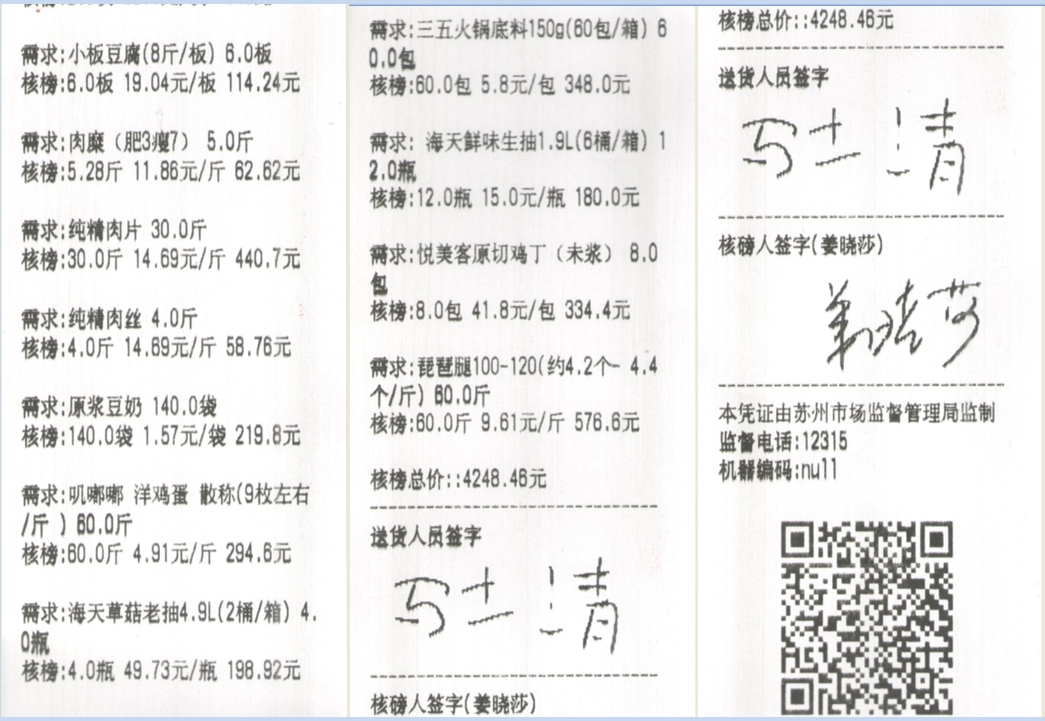 需求:小板豆腐(8斤/板) 6.0板
核榜:6.0板 19.04元/板 114.24元
需求:肉糜（肥3瘦7） 5.0斤
核榜:5.28斤 11.86元/斤 62.62元
需求:纯精肉片 30.0斤
核榜:30.0斤 14.69元/斤 440.7元
需求:纯精肉丝 4.0斤
核榜:4.0斤 14.69元/斤 58.76元
需求:原浆豆奶 140.0袋
核榜:140.0袋 1.57元/袋 219.8元
需求:叽嘟嘟 洋鸡蛋 散称(9枚左右
/斤 ) 60.0斤
核榜:60.0斤 4.91元/斤 294.6元
需求:海天草菇老抽4.9L(2桶/箱) 4.
0瓶
核榜:4.0瓶 49.73元/瓶 198.92元
需求:三五火锅底料150g(60包/箱) 6
0.0包
核榜:60.0包 5.8元/包 348.0元
需求: 海天鲜味生抽1.9L(6桶/箱) 1
2.0瓶
核榜:12.0瓶 15.0元/瓶 180.0元
需求:悦美客原切鸡丁（未浆） 8.0
包
核榜:8.0包 41.8元/包 334.4元
需求:琵琶腿100-120(约4.2个- 4.4
个/斤) 60.0斤
核榜:60.0斤 9.61元/斤 576.6元
核榜总价::4248.46元
送货人员签字
核磅人签字(姜晓莎)
核榜总价::4248.46元
送货人员签字
核磅人签字(姜晓莎)
姜晓莎
本凭证由苏州市场监督管理局监制
监督电话:12315
机器编码:null